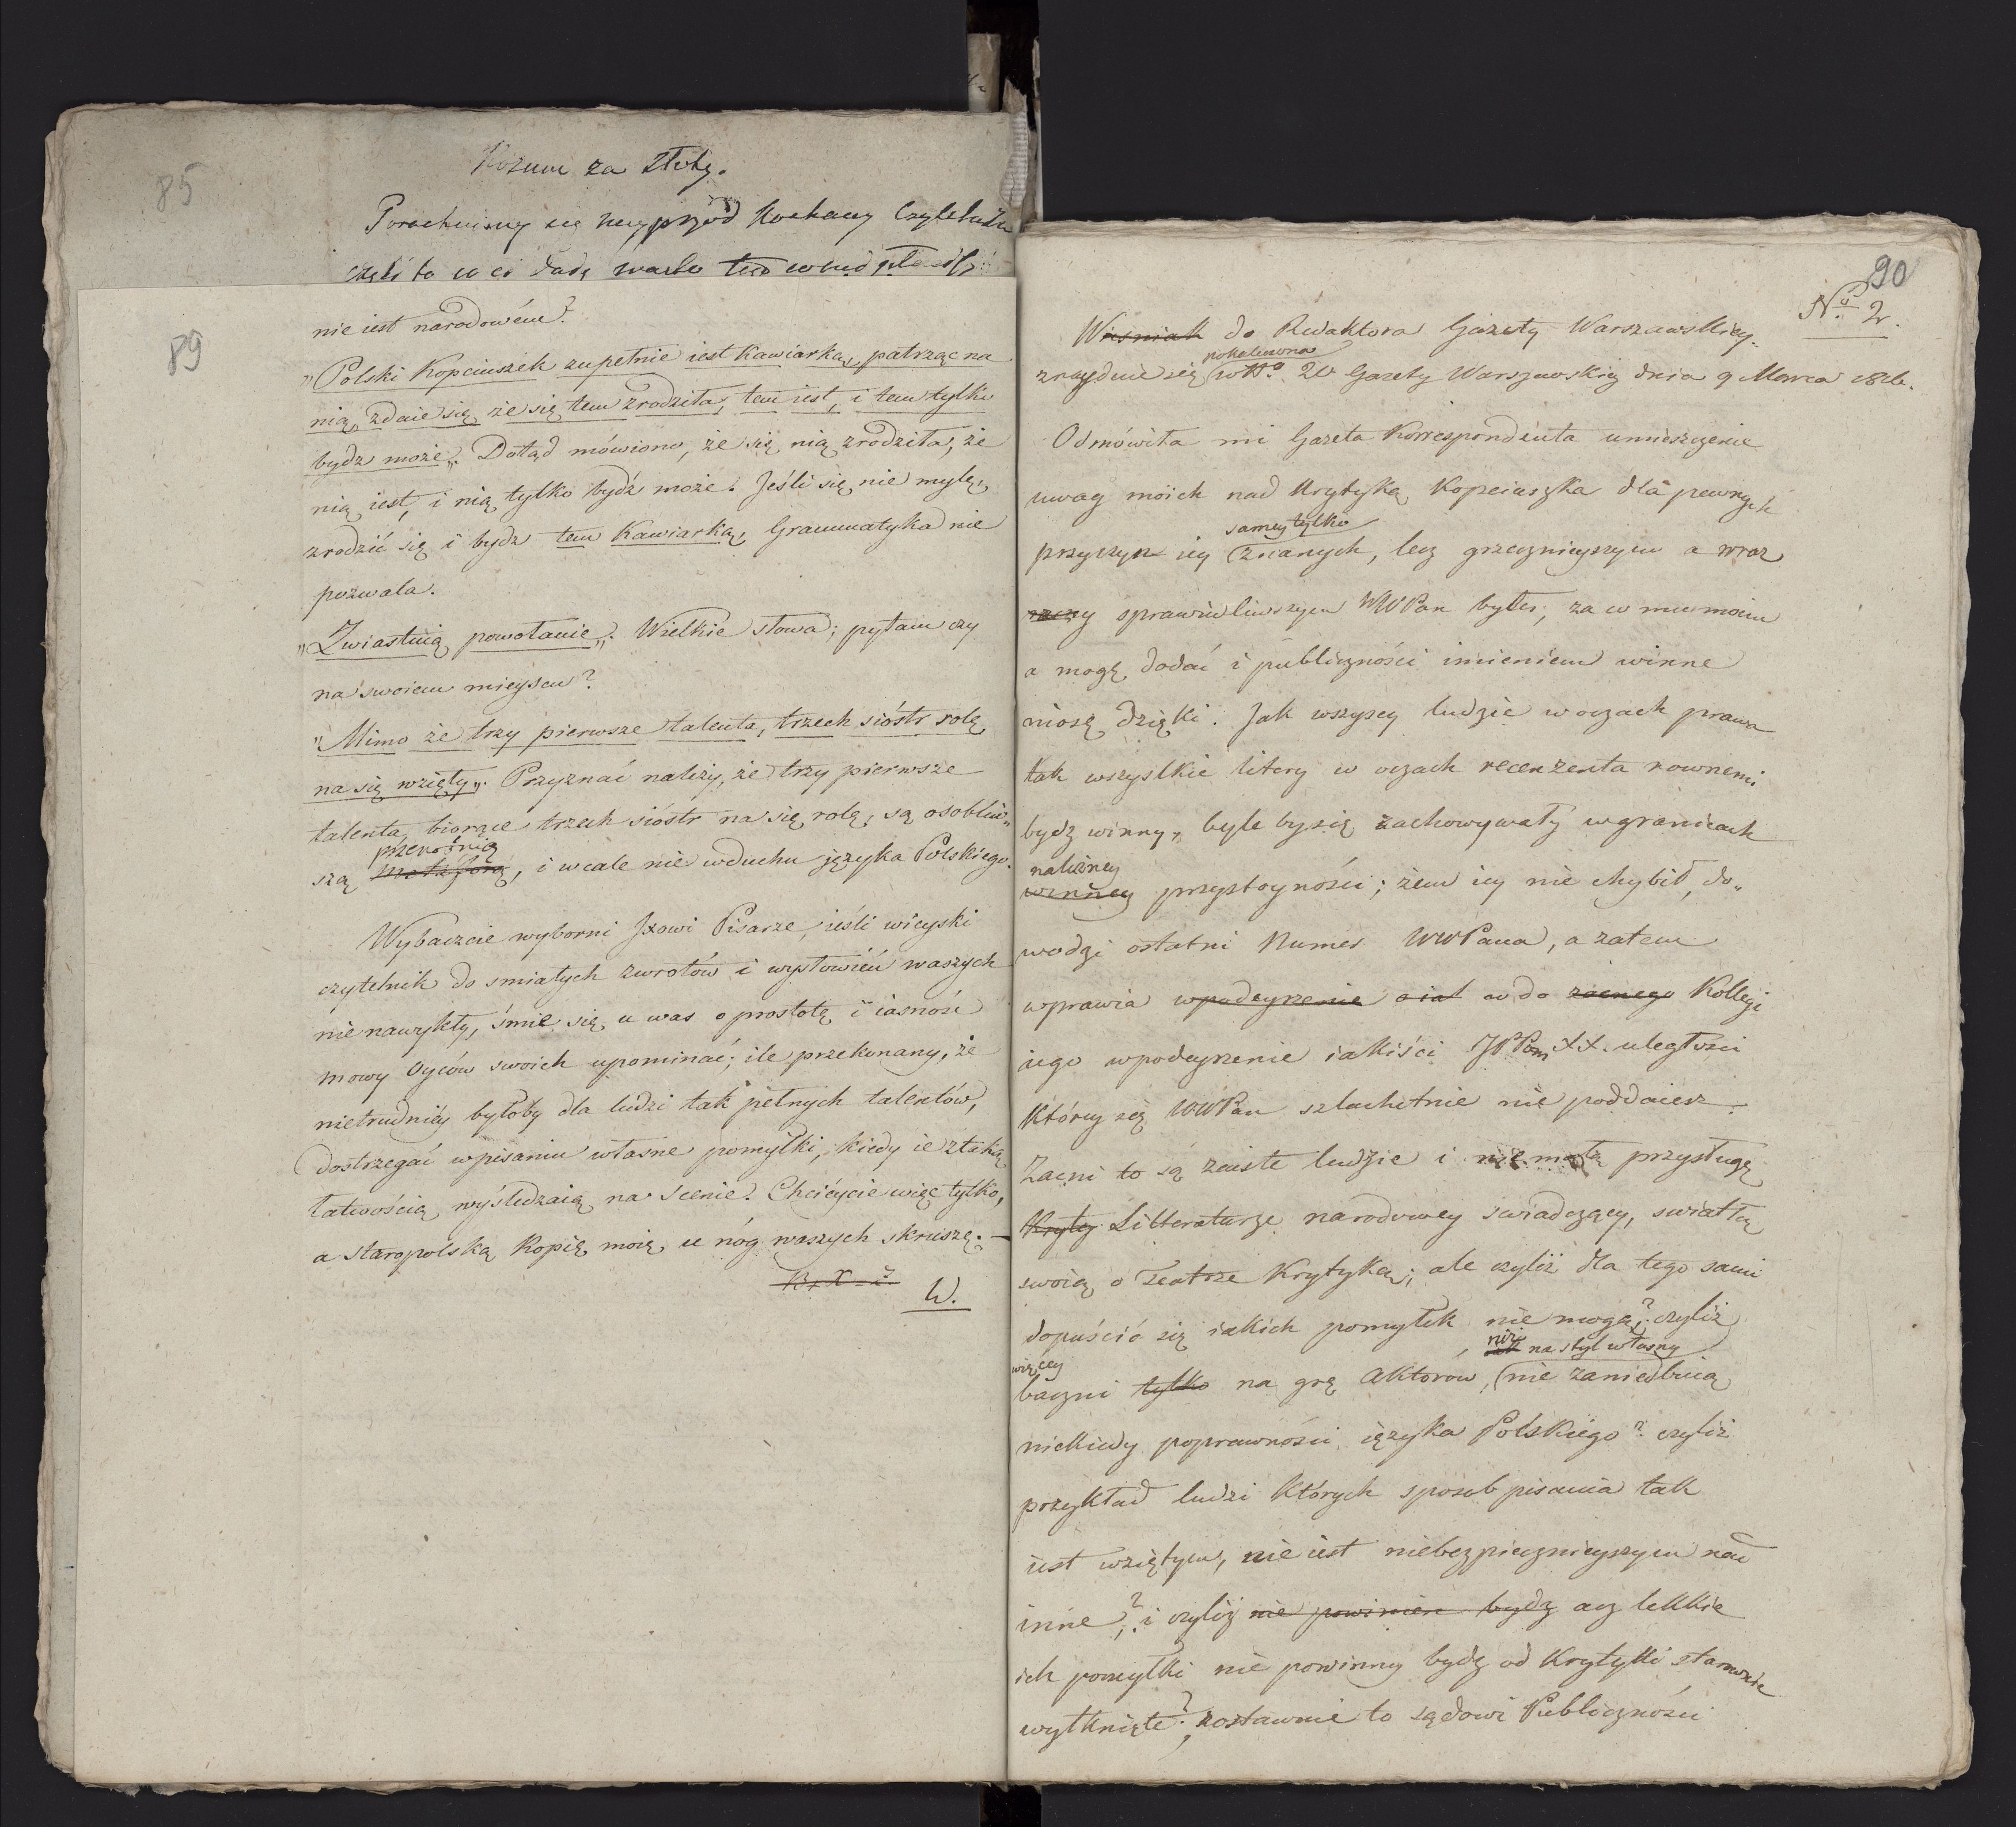 85
Rozum za Złoty.
Porachujmy się nayprzód kochany Czytelniku
czyli to co ci dadę warto
89
nie iest narodowém?
"Polski Kopciuszek zupełnie iest Kawiarką, patrząc na
nią, zdaie się że się tem zrodziła, tem iest, i tem tylko
bydz może„. Dotąd mówiono, że się nią zrodziła, że
nią iest, i nią tylko bydź może. Jeśli się nie mylę,
zrodzić się i bydz tem Kawiarką, Grammatyka nie
pozwala.
"Zwiastuią powołanie„. Wielkie słowa; pytam czy
na swoiem mieyscu?
"Mimo że trzy pierwsze talenta, trzech sióstr rolę
na się wzięły„. Przyznać należy, że trzy pierwsze
talenta, biorące trzech sióstr na się rolę, są osobliw„
przenośnią
szą metaforą, i wcale nie w duchu języka Polskiego.
Wybaczcie wyborni Jxowi Pisarze, ieśli wieyski
czytelnik do smiałych zwrotów i wysłowień waszych
nie nawykły, śmie się u was o prostotę i iasność
mowy Oyców swoich upominać; ile przekonany, że
nietrudniéy byłoby dla ludzi tak pełnych talentów,
dostrzegać w pisaniu własne pomyłki, kiedy ie z taką
łatwością wyśledzaią na Scenie. Chcićycie więc tylko,
a staropolską Kopię moią u nóg waszych skruszę. —
W.
90
Nº 2.
Wisniak do Redaktora Gazety Warszawskiey.
pokaleczona
znayduie się w Nº 20 Gazety Warszawskiey dnia 9 Marca 1816.
Odmówiła mi Gazeta Korrespondenta umieszczenie
uwag moich nad Krytyką Kopciuszka dla pewnych
samey tylko
przyczyn iey znanych, lecz grzecznieyszym a wraz
rzeczy sprawiedliwszym WWPan byłeś, za co mu moim
a mogę dodać i publiczności imieniem winne
niosę dzięki. Jak wszyscy ludzie w oczach prawa
tak wszystkie litery w oczach recenzenta rownemi
bydz winny, byle by się zachowywały w granicach
należney
winney przystoyności; żem iey nie chybił, do„
wodzi ostatni Numer WWPana, a zatem
wprawia w podeyrzenie co do zacnego Kollegi
iego w podeyrzenie iakiści JPPom XX. uległości
którey się WWPan szlachetnie nie poddaiesz.
Zacni to są zaiste ludzie i nie małą przysługę
Kryty Litteraturze narodowey swiadczący, swiatłą
swoią o Teatrze Krytyką; ale czyliż dla tego sami
dopuścić się iakich pomyłek nie mogą?; czyliż
więcey
, niż na styl własny
baczni tylko na grę Aktorow, nie zaniedbuią
niekiedy poprawności ięzyka Polskiego? czyliż
przykład ludzi których sposob pisania tak
iest wziętym, nie iest niebezpiecznieyszym nad
inne?; i czyliż nie powinien bydz acz lekkie
ich pomyłki nie powinny bydz od Krytyki starannie
wytknięte?, zostawmie to sądowi Publiczności